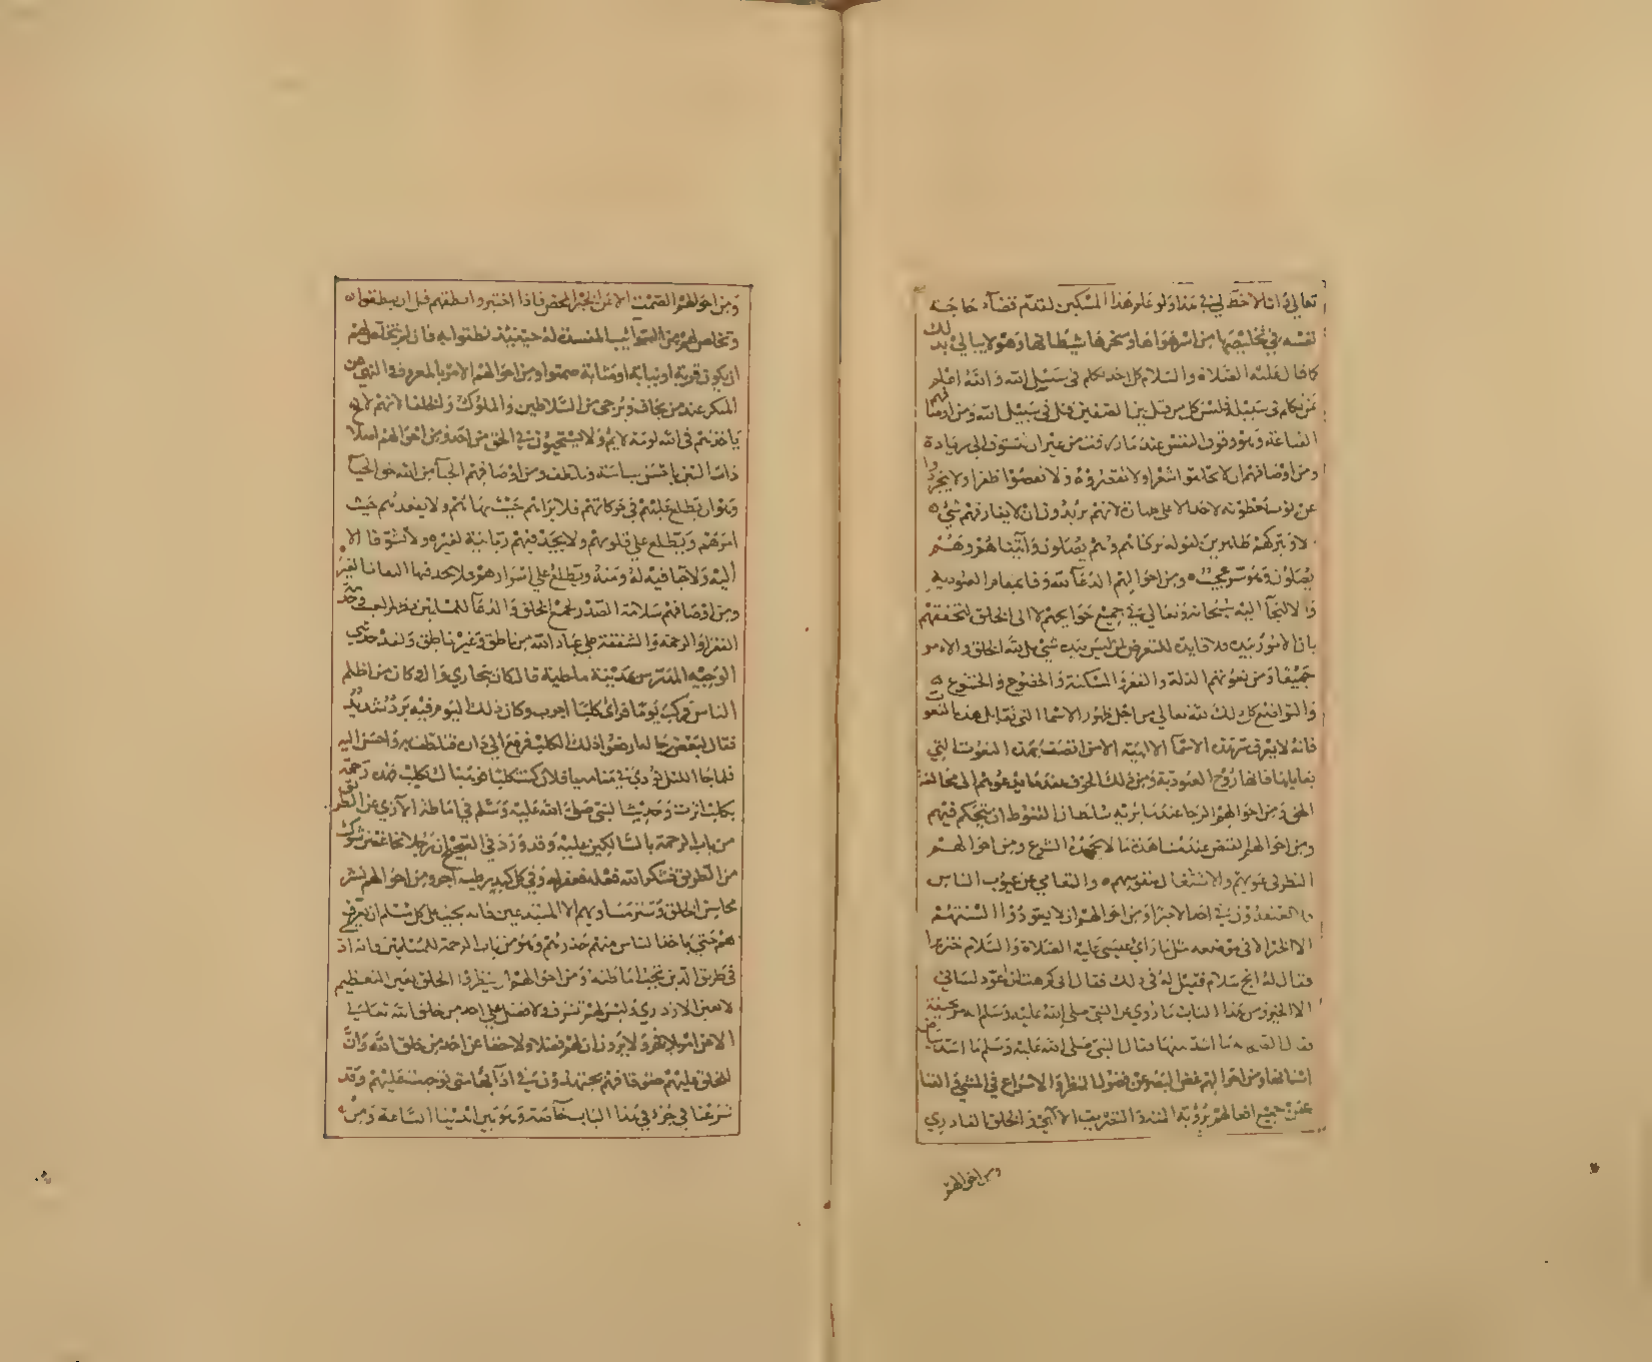 تعالى وان لاخظ لي في هذا ولو علم هذا المسكين لقدم قضاء حاجة
نفسه في تخليصها من اسر هواها وسخرها شيطانها وهو لا يبالي بذلك
كما قال عليه الصلاة والسلام كل احد تكلم في سبيل الله والله اعلم
بمن يكلم في سبيله فليس كل من قتل بين الصفين قتل في سبيل الله ومن اوصافهم
القناعة وهو وقوف النفس عندما رزقت من غير ان تتشوف الى زيادة
ومن اوصافهم ان لا يحلقوا شعرا ولا ولا يقصوا ظفرا ولا يخرجوا
عن ثوب يعطونه لاحد الا على طهارة لانهم يريدون ان لا يفارقهم شيء
الا وتتركهم طاهرين لقوله تركناهم وهم يصلون واتيناهم وهم
يصلون وهو سر عجيب ومن احوالهم الدعاء لله وفا بمقام العبودية
والالتجا اليه سبحانه وتعالى في جميع حوايجهم لا الى الخلق لتحققهم
بان الامور بيده فلا فايدة للتعرض لمن ليس بيده شيء بل لله الخلق والامر
جميعا ومن نعوتهم الذلة والفقر والمسكنة والخضوع والخشوع
والتواضع كل ذلك لله تعالى من اجل ظهور الاسما التي تقابل هذه النعوت
فانه لا يعرف سر هذه الاسما الالهية الا من اتصف بهذه النعوت التي
تقابلها فانها روح العبودية ومن ذلك الخوف عندما تدعوهم الى مخالفة
الحق ومن احوالهم الرجا عندما يريد سلطان القنوط ان يتحكم فيهم
ومن احوالهم القبض عند مشاهدة ما لا يحمده الشرع ومن احوالهم
النظر في عيوبهم والاشتغال بنفوسهم والتعامي عن عيوب الناس
ولا يعتقدون في احد الا خيرا ومن احوالهم ان لا يعودوا السنتهم
الا الخير الا في موضعه مثل ما راى عيسى عليه الصلاة والسلام خنزيرا
فقال له انج سلام فقيل له في ذلك فقال اني كرهت ان اعود لساني
الا الخير ومن هذا الباب ما روي عن النبي صلى الله عليه وسلم انه مر بجيفة
فقال ما انتنها فقال النبي صلى الله عليه وسلم ما اشد بياض
اسنانها ومن احوالهم غض البصر عن فضول النظر والاسراع في المشي
جميع افعالهم رؤية المنة الخلق الفادري
ومن احوالهم
ومن احوالهم الصمت الا عن الخير المحض فاذا اختبروا نطقهم قبل ان ينطقوا به
وتخلص لهم من الشوائب المفسدة له حينئذ نطقوا به فان لم تتخلص لهم
ان يكون قربة او نيابة او مشابة صمتوا ومن احوالهم الامر بالمعروف والنهي عن
المنكر عند من يخاف ويرجى من السلاطين والملوك والخلفا لانهم لا
ياخذهم في الله لومة لايم ولا يستحيون في الحق من احد ومن احوالهم اصلاح
ذات البين باحسن سياسة وتلطف ومن اوصافهم الحيا من الله هو الحيا
وهو ان يطلع عليهم في حركاتهم فلا يراهم حيث نهاهم ولا يفقدهم حيث
امرهم ويطلع على قلوبهم ولا يجد فيهم ربانية لغيره ولا تشوقا الا
اليه ولا جا فيه له ومنه ويطلع على اسرارهم فلا يجد فيها التفاتا لغيره
ومن اوصافهم سلامة الصدر لجميع الخلق والدعا للمسلمين بظهر الغيب وخدمة
الفقرا والرحمة والشفقة على عباد الله من ناطق وغير ناطق ولقد حدثني
الوجيه المدرس بمدينة ملطية قال كان ببخارى وال وكان من اظلم
الناس فركب يوما فراى كلبا اجرب وكان ذلك اليوم فيه برد شديد
فقال لبعض رجاله ارفعوا ذلك الكلب فرفع الى داره فتلطف به واحسن اليه
فلما جا الليل نودي في منامه يا فلان كنت كلبا فوهبناك لكلب فهذه رحمة
بكلب اثرت وحديث النبي صلى الله عليه وسلم في اماطة الاذى عن الطريق
من باب الرحمة بالسالكين عليه وقد ورد في الصحيح ان رجلا نحا غصن شوك
من الطريق فشكر الله فعله فغفر له وفي كل كبد رطبة اجر ومن احوالهم نشر
محاسن الخلق وستر مساويهم الا المبتدعين فانه يجب على كل مسلم ان يعرفهم
حتى ياخذ الناس منهم حذرهم وهو من باب الرحمة للمسلمين وانه اذى
في طريق الدين تجب اماطته ومن احوالهم ان ينظروا الخلق بعين التعظيم
لا بعين الازدراء وليس لهم تشرف ولا فضل على احد من خلق الله تعالى
الا من امر بلا ولا يرون ان لهم فضلا ولا حقا على احد من خلق الله وان
للخلق عليهم حقوقا فهم يجتهدون في ادائها متى توجهت عليهم وقد
شرعنا في جزء في هذا الباب خاصة وهو بين ايدينا الساعة ومن